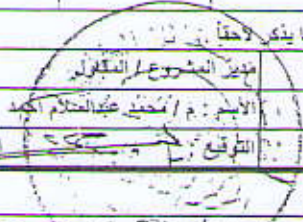 يذكر لاحقا
مدير المشروع / المقاول
الاسم : م / محمد عبدالسلام احمد
التوقيع :